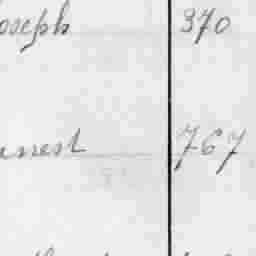 oseph 370
nest 767